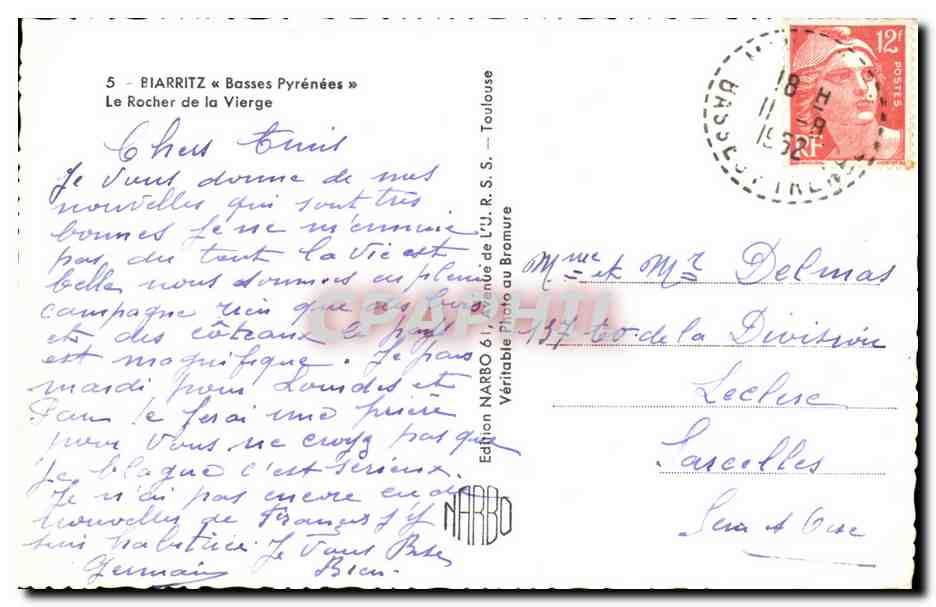 5 - BIARRITZ « Basses Pyrénées »
Le Rocher de la Vierge
Chers Amis
Je vous donne de mes
nouvelles qui sont très
bonnes Je ne m'ennuie
pas du tout la vie est
belle nous dormons en pleine
campagne rien que des bois
et des côteaux le pays
est magnifique. Je pars
mardi pour Lourdes et
Pau Je ferai une prière
pour vous ne croyez pas que
je blague c'est sérieux.
Je n'ai pas encore eu de
nouvelles de François j'y
suis Je vous Bise
Germain Bien.
Edition NARBO 61, Avenue de L'U.R.S.S. - Toulouse
Véritable Photo au Bromure
NARBO
CPAPHIL
12F
POSTES
RF
18 H
11 -8
1952
BASSES PYRENEES
Mme et Mr Delmas
137 de la Division
Leclerc
Sarcelles
Seine et Oise